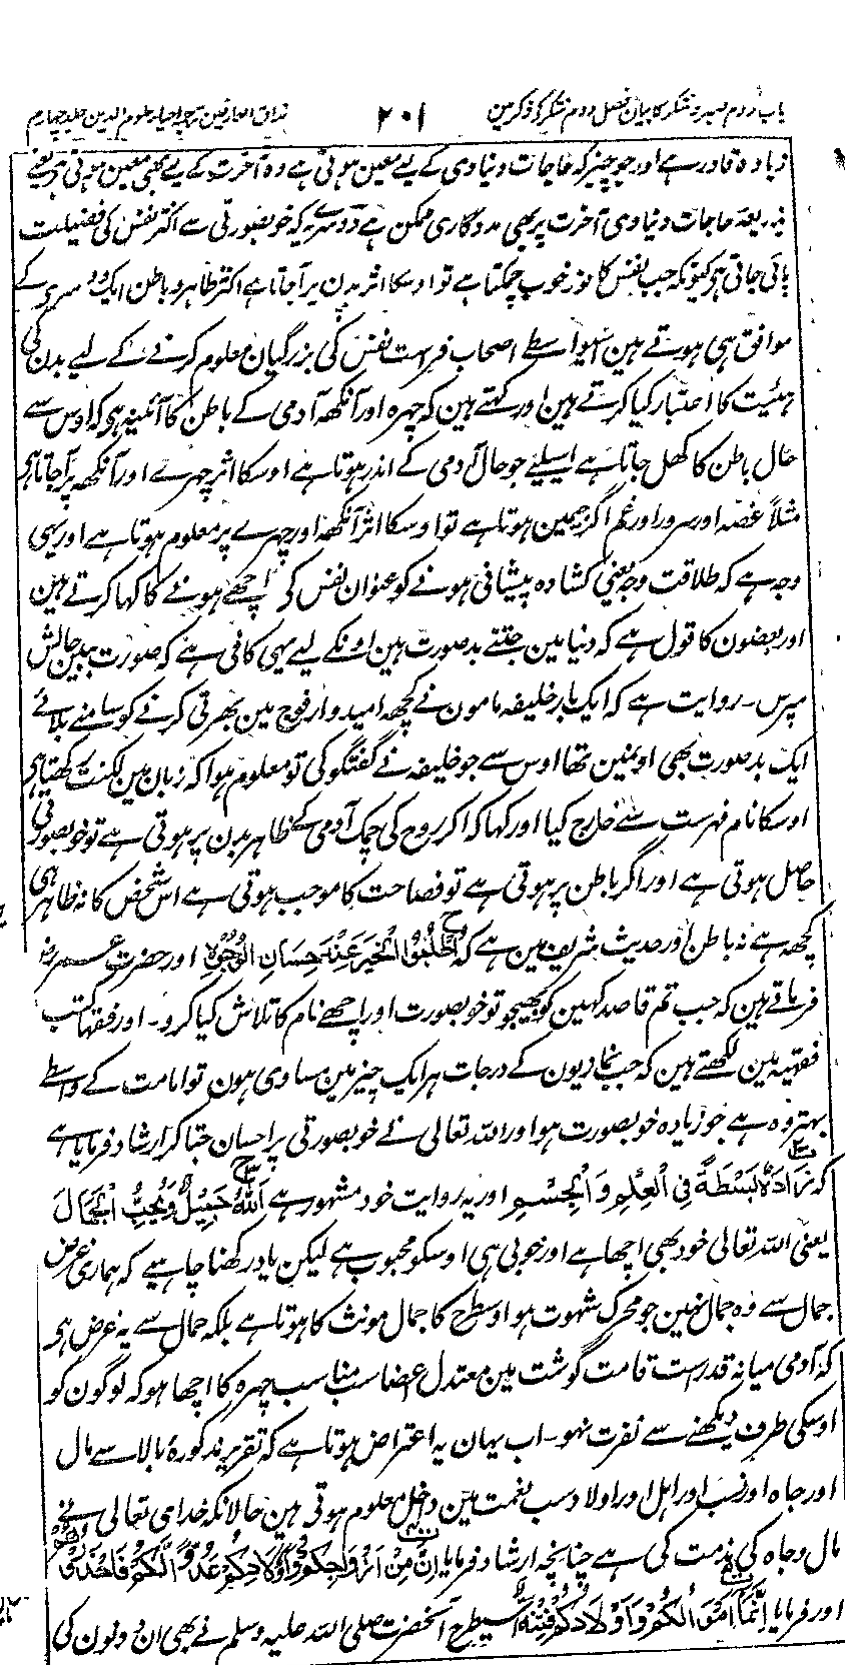 باب دوم صبر و شکر کا بیان فصل دوم شکر کے ذکر مین
۲۰۱
مذاق العارفین ترجمہ احیاء علوم الدین جلد چہارم
زیادہ قادر ہے اور جو چیز کہ حاجات دنیاوی کے لیے معین ہوتی ہے وہ آخرت کے لیے بھی معین ہوتی ہی یعنے
بذریعہ حاجات دنیاوی آخرت پر بھی مددگاری ممکن ہے دوسرے یہ کہ خوبصورتی سے اکثر نفس کی فضیلت
پائی جاتی ہی کیونکہ جب نفس کا نور خوب چمکتا ہے تو اوسکا اثر بدن پر آجاتا ہے اکثر ظاہر و باطن ایک دوسری کے
موافق ہی ہوتے ہین اسیواسطے اصحاب فراست نفس کی بزرگیان معلوم کرنے کے لیے بدن کی
ہیئیت کا اعتبار کیا کرتے ہین اور کہتے ہین کہ چہرہ اور آنکھہ آدمی کے باطن کا آئینہ ہی کہ اوس سے
حال باطن کا کھل جاتا ہے اسلیے جو حال آدمی کے اندر ہوتا ہے اوسکا اثر چہرے اور آنکھہ پر آجاتا ہی
مثلاً غصہ اور سرور اور غم اگر جیمین ہوتا ہے تو اوسکا اثر آنکھہ اور چہرے پر معلوم ہوتا ہے اور یہی
وجہ ہے کہ طلاقت وجہ یعنی کشادہ پیشانی ہونے کو عنوان نفس کے اچھے ہونے کا کہا کرتے ہین
اور بعضون کا قول ہے کہ دنیا مین جتنے بدصورت ہین اونکے لیے یہی کافی ہے کہ صورت ببین حالش
مپرس۔ روایت ہے کہ ایک بار خلیفہ مامون نے کچھہ امیدوار فوج مین بھرتی کرنے کو سامنے بلائے
ایک بدصورت بھی اونمین تھا اوس سے جو خلیفہ نے گفتگو کی تو معلوم ہوا کہ زبان مین لکنت رکھتا ہی
اوسکا نام فہرست سے خارج کیا اور کہا کہ اگر روح کی چمک آدمی کے ظاہر بدن پر ہوتی ہے تو خوبصورتی
حاصل ہوتی ہے اور اگر باطن پر ہوتی ہے تو فصاحت کا موجب ہوتی ہے اس شخص کا نہ ظاہر ہی
کچھہ ہے نہ باطن اور حدیث شریف مین ہے کہ اُطْلُبُوا الْخَيْرَ عِنْدَ حِسَانِ الْوُجُوْهِ اور حضرت عمر رض
فرماتے ہین کہ جب تم قاصد کہین کو بھیجو تو خوبصورت اور اچھے نام کا تلاش کیا کرو۔ اور فقہا کتب
فقہیہ مین لکھتے ہین کہ جب نمازیون کے درجات ہر ایک چیز مین مساوی ہون تو امامت کے واسطے
بہتر وہ ہے جو زیادہ خوبصورت ہو اور اللہ تعالی نے خوبصورتی پر احسان جتا کر ارشاد فرمایا ہے
کہ زَادَهٗ بَسْطَةً فِی الْعِلْمِ وَالْجِسْمِ اور یہ روایت خود مشہور ہے اَللّٰهُ جَمِيْلٌ وَيُحِبُّ الْجَمَالَ
یعنی اللہ تعالی خود بھی اچھا ہے اور خوبی ہی اوسکو محبوب ہے لیکن یاد رکھنا چاہیے کہ ہماری غرض
جمال سے وہ جمال نہین جو محرک شہوت ہو اوسطرح کا جمال مونث کا ہوتا ہے بلکہ جمال سے یہ غرض ہی
کہ آدمی میانہ قد راست قامت گوشت مین معتدل اعضا سب مناسب چہرہ کا اچھا ہو کہ لوگون کو
اوسکی طرف دیکھنے سے نفرت نہو۔ اب یہان یہ اعتراض ہوتا ہے کہ تقریر مذکورۂ بالا سے مال
اور جاہ اور نسب اور اہل اور اولاد سب نعمت مین داخل معلوم ہوتی ہین حالانکہ خدای تعالی نے
مال و جاہ کی مذمت کی ہے چنانچہ ارشاد فرمایا اِنَّ مِنْ اَزْوَاجِكُمْ وَاَوْلَادِكُمْ عَدُوًّا لَّكُمْ فَاحْذَرُوْهُمْ
اور فرمایا اِنَّمَا اَمْوَالُكُمْ وَاَوْلَادُكُمْ فِتْنَةٌ اسیطرح آنحضرت صلی اللہ علیہ وسلم نے بھی ان دونون کی